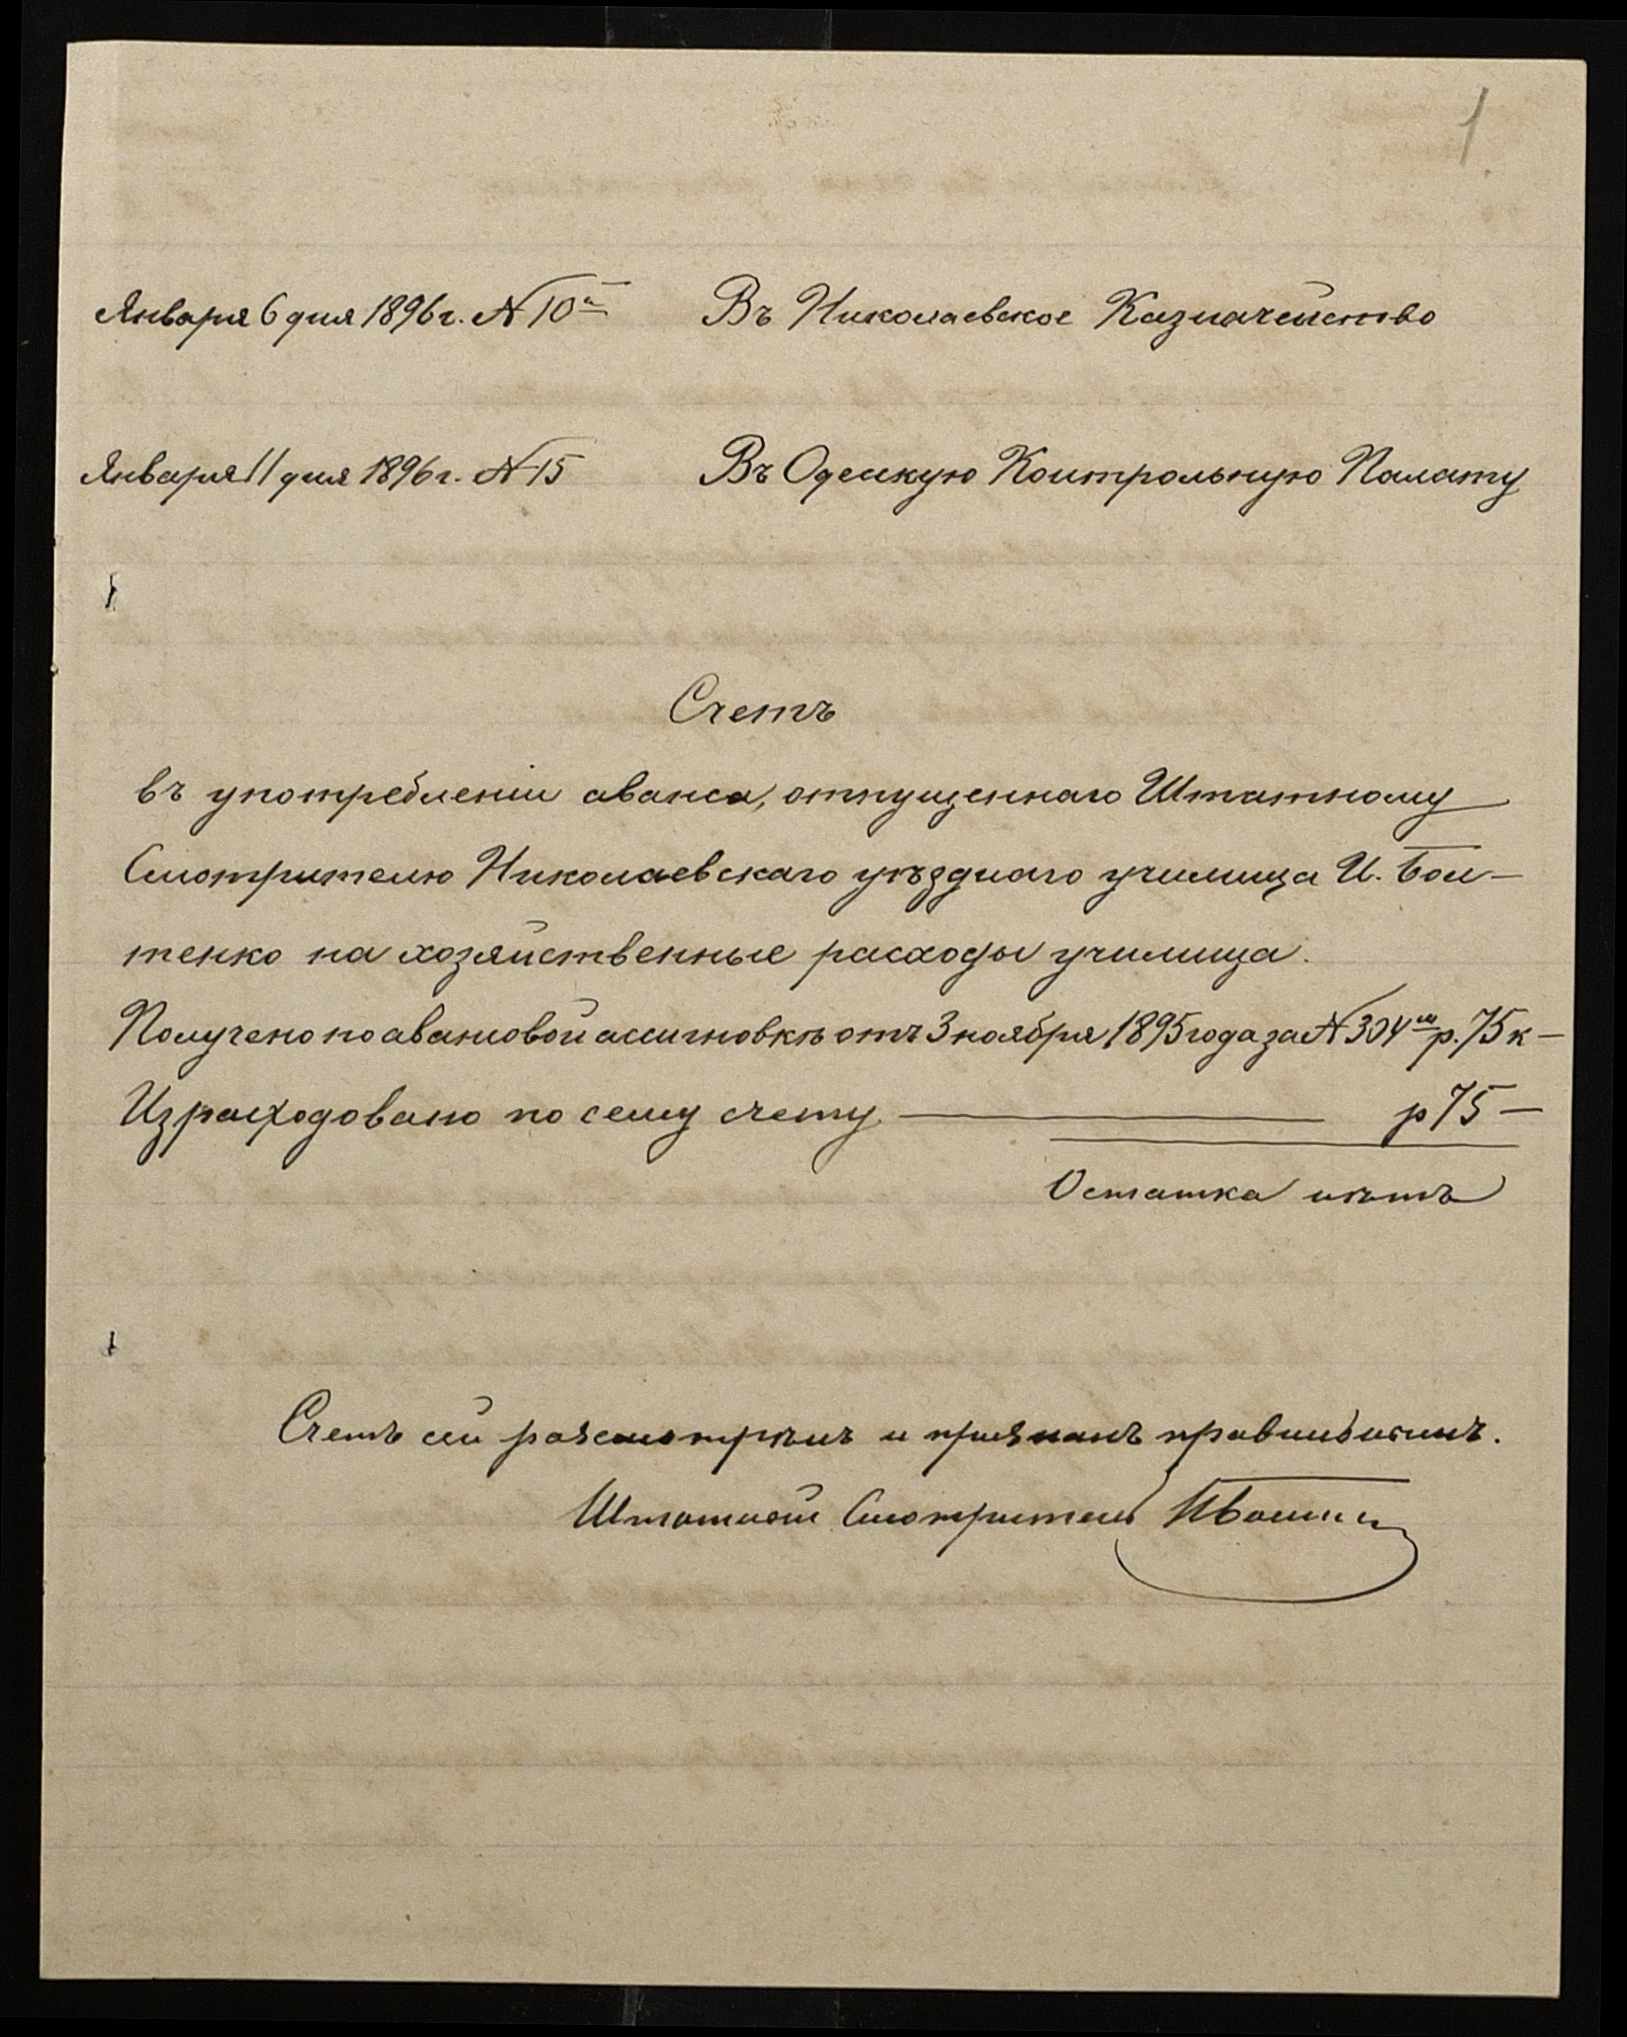 1
Января 6 дня 1896 г. № 10ᵃ Въ Николаевское Казначейство
Января 11 дня 1896 г. № 15 Въ Одесскую Контрольную Палату
Счетъ
въ употребленіи аванса, отпущеннаго Штатному
Смотрителю Николаевскаго уѣзднаго училища И. Бол-
тенко на хозяйственные расходы училища.
Получено по авансовой ассигновкѣ отъ 3 ноября 1895 года за № 304ᵐ р. 75 к —
Израсходовано по сему счету — р 75 —
Остатка нѣтъ
Счетъ сей разсмотрѣнъ и признанъ правильнымъ.
Штатный Смотритель